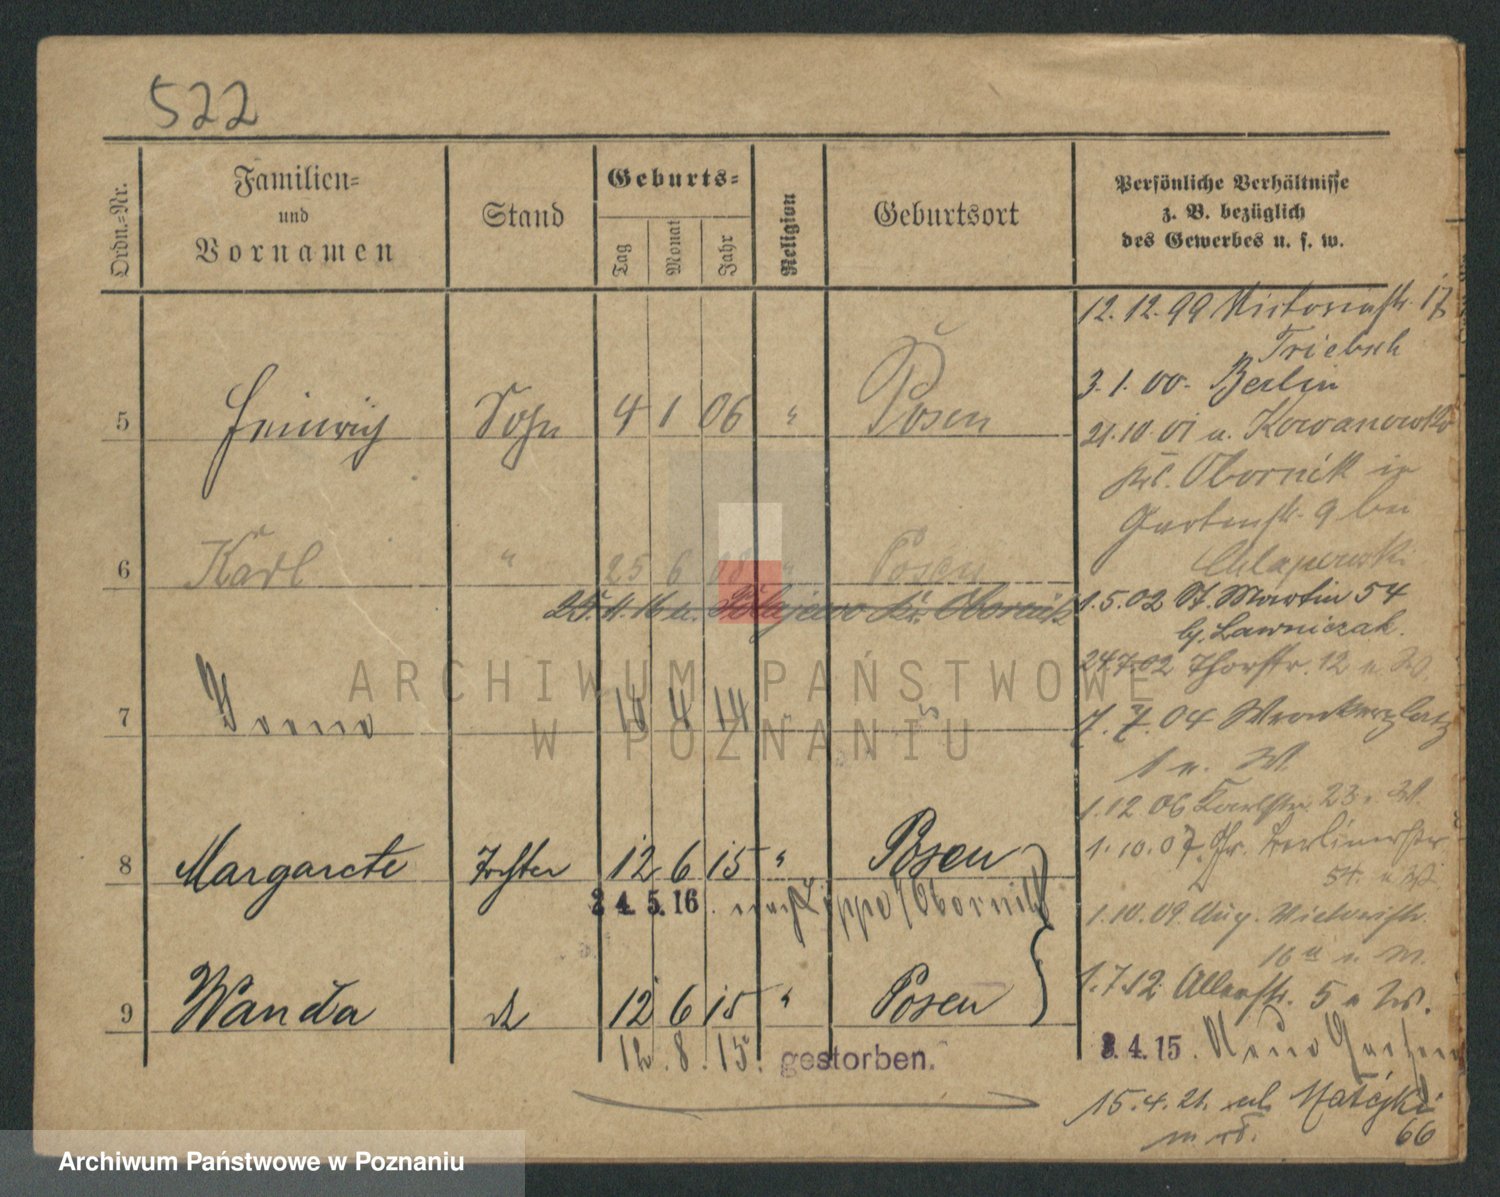 522
Ordn.-Nr.
Familien-
und
Vornamen
Stand
Geburts-
Tag
Monat
Jahr
Religion
Geburtsort
Persönliche Verhältnisse
z. B. bezüglich
des Gewerbes u. s. w.
5 Heinrich Sohn 4 1 06 " Posen
6 Karl " 25 6 08 " Posen
25.4.16 n. Polajewo Kr. Obornik
7 14 4 14 "
8 Margarete Tochter 12 6 15 " Posen
24.5.16. nach Lippe / Obornik
9 Wanda do 12 6 15 " Posen
12.8.15. gestorben.
12.12.99 Victoriastr. 17
Triebsch
3.1.00. Berlin
21.10.01 n. Kowanowko
Obornik in
Gartenstr. 9 bei
Chlapowski
1.5.02 St. Martin 54
by. Lawniczak.
24.7.02 Thorstr. 12 n W.
7.7.04 Wronkerplatz
1 n. W.
1.12.06 Karlstr. 23 n W.
1.10.07. Gr. Berlinerstr
54 n W.
1.10.09. Aug. Victoriastr.
16 a n W.
1.7.12. Allerstr. 5 n W.
3.4.15. Neue Gartenstr
15.4.21. ul. Matejki
66
ARCHIWUM PAŃSTWOWE
W POZNANIU
Archiwum Państwowe w Poznaniu